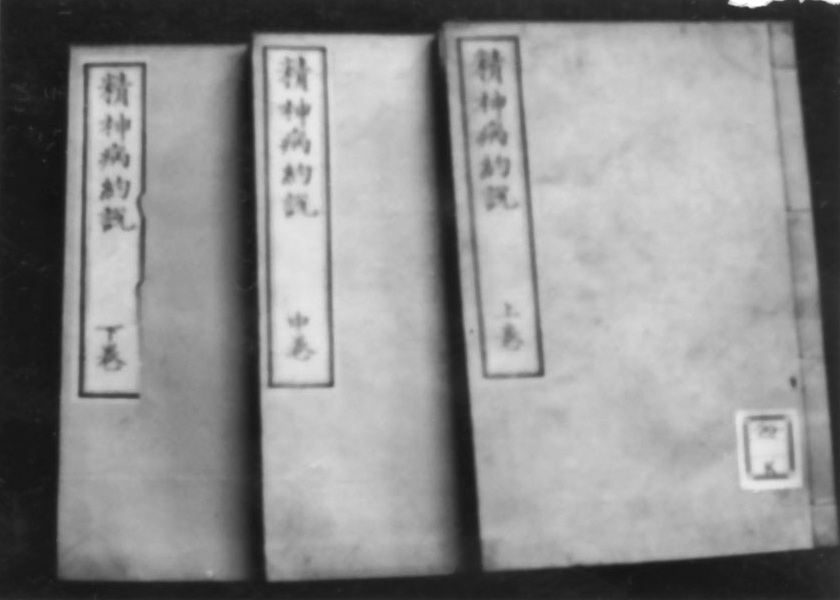 精神病約説
上巻
精神病約説
中巻
精神病約説
下巻